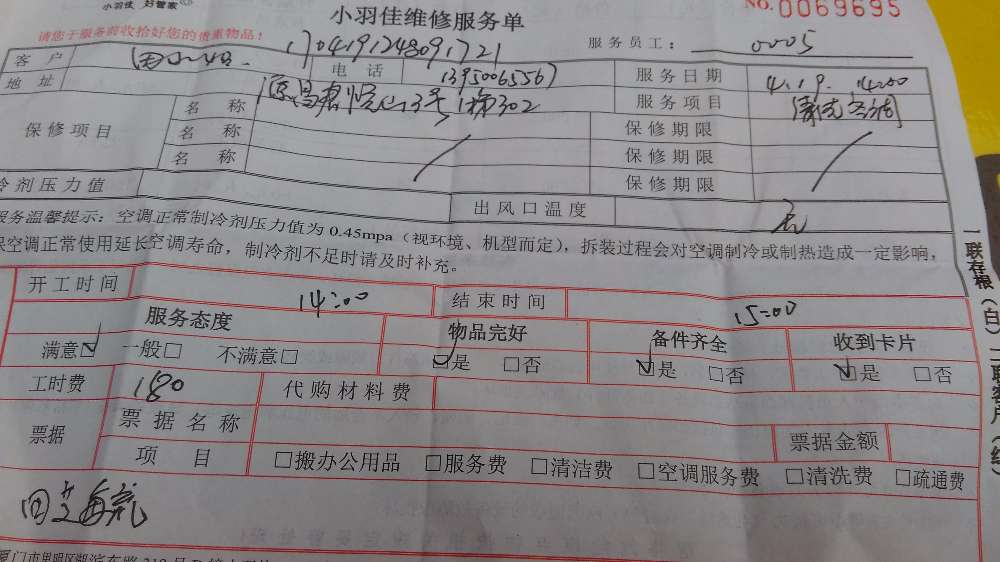 小羽佳 好管家
小羽佳维修服务单
NO.0069695
请您于服务前收拾好您的贵重物品!
170419124809 1721
服务员工: 0005
客户 电话 13950065567 服务日期 4.19. 14:00
地址 3号 1梯302 服务项目 清洗空调
保修项目 名称 保修期限
名称 保修期限
名称 保修期限
冷剂压力值 出风口温度 元
服务温馨提示:空调正常制冷剂压力值为0.45mpa(视环境、机型而定),拆装过程会对空调制冷或制热造成一定影响,
保空调正常使用延长空调寿命,制冷剂不足时请及时补充。
开工时间 14:00 结束时间 15:00
服务态度 物品完好 备件齐全 收到卡片
满意☑ 一般□ 不满意□ ☑是 □否 ☑是 □否 ☑是 □否
工时费 180 代购材料费
票据 票据名称 票据金额
项目 □搬办公用品 □服务费 □清洁费 □空调服务费 □清洗费 □疏通费
一联存根(白)二联客户(红)